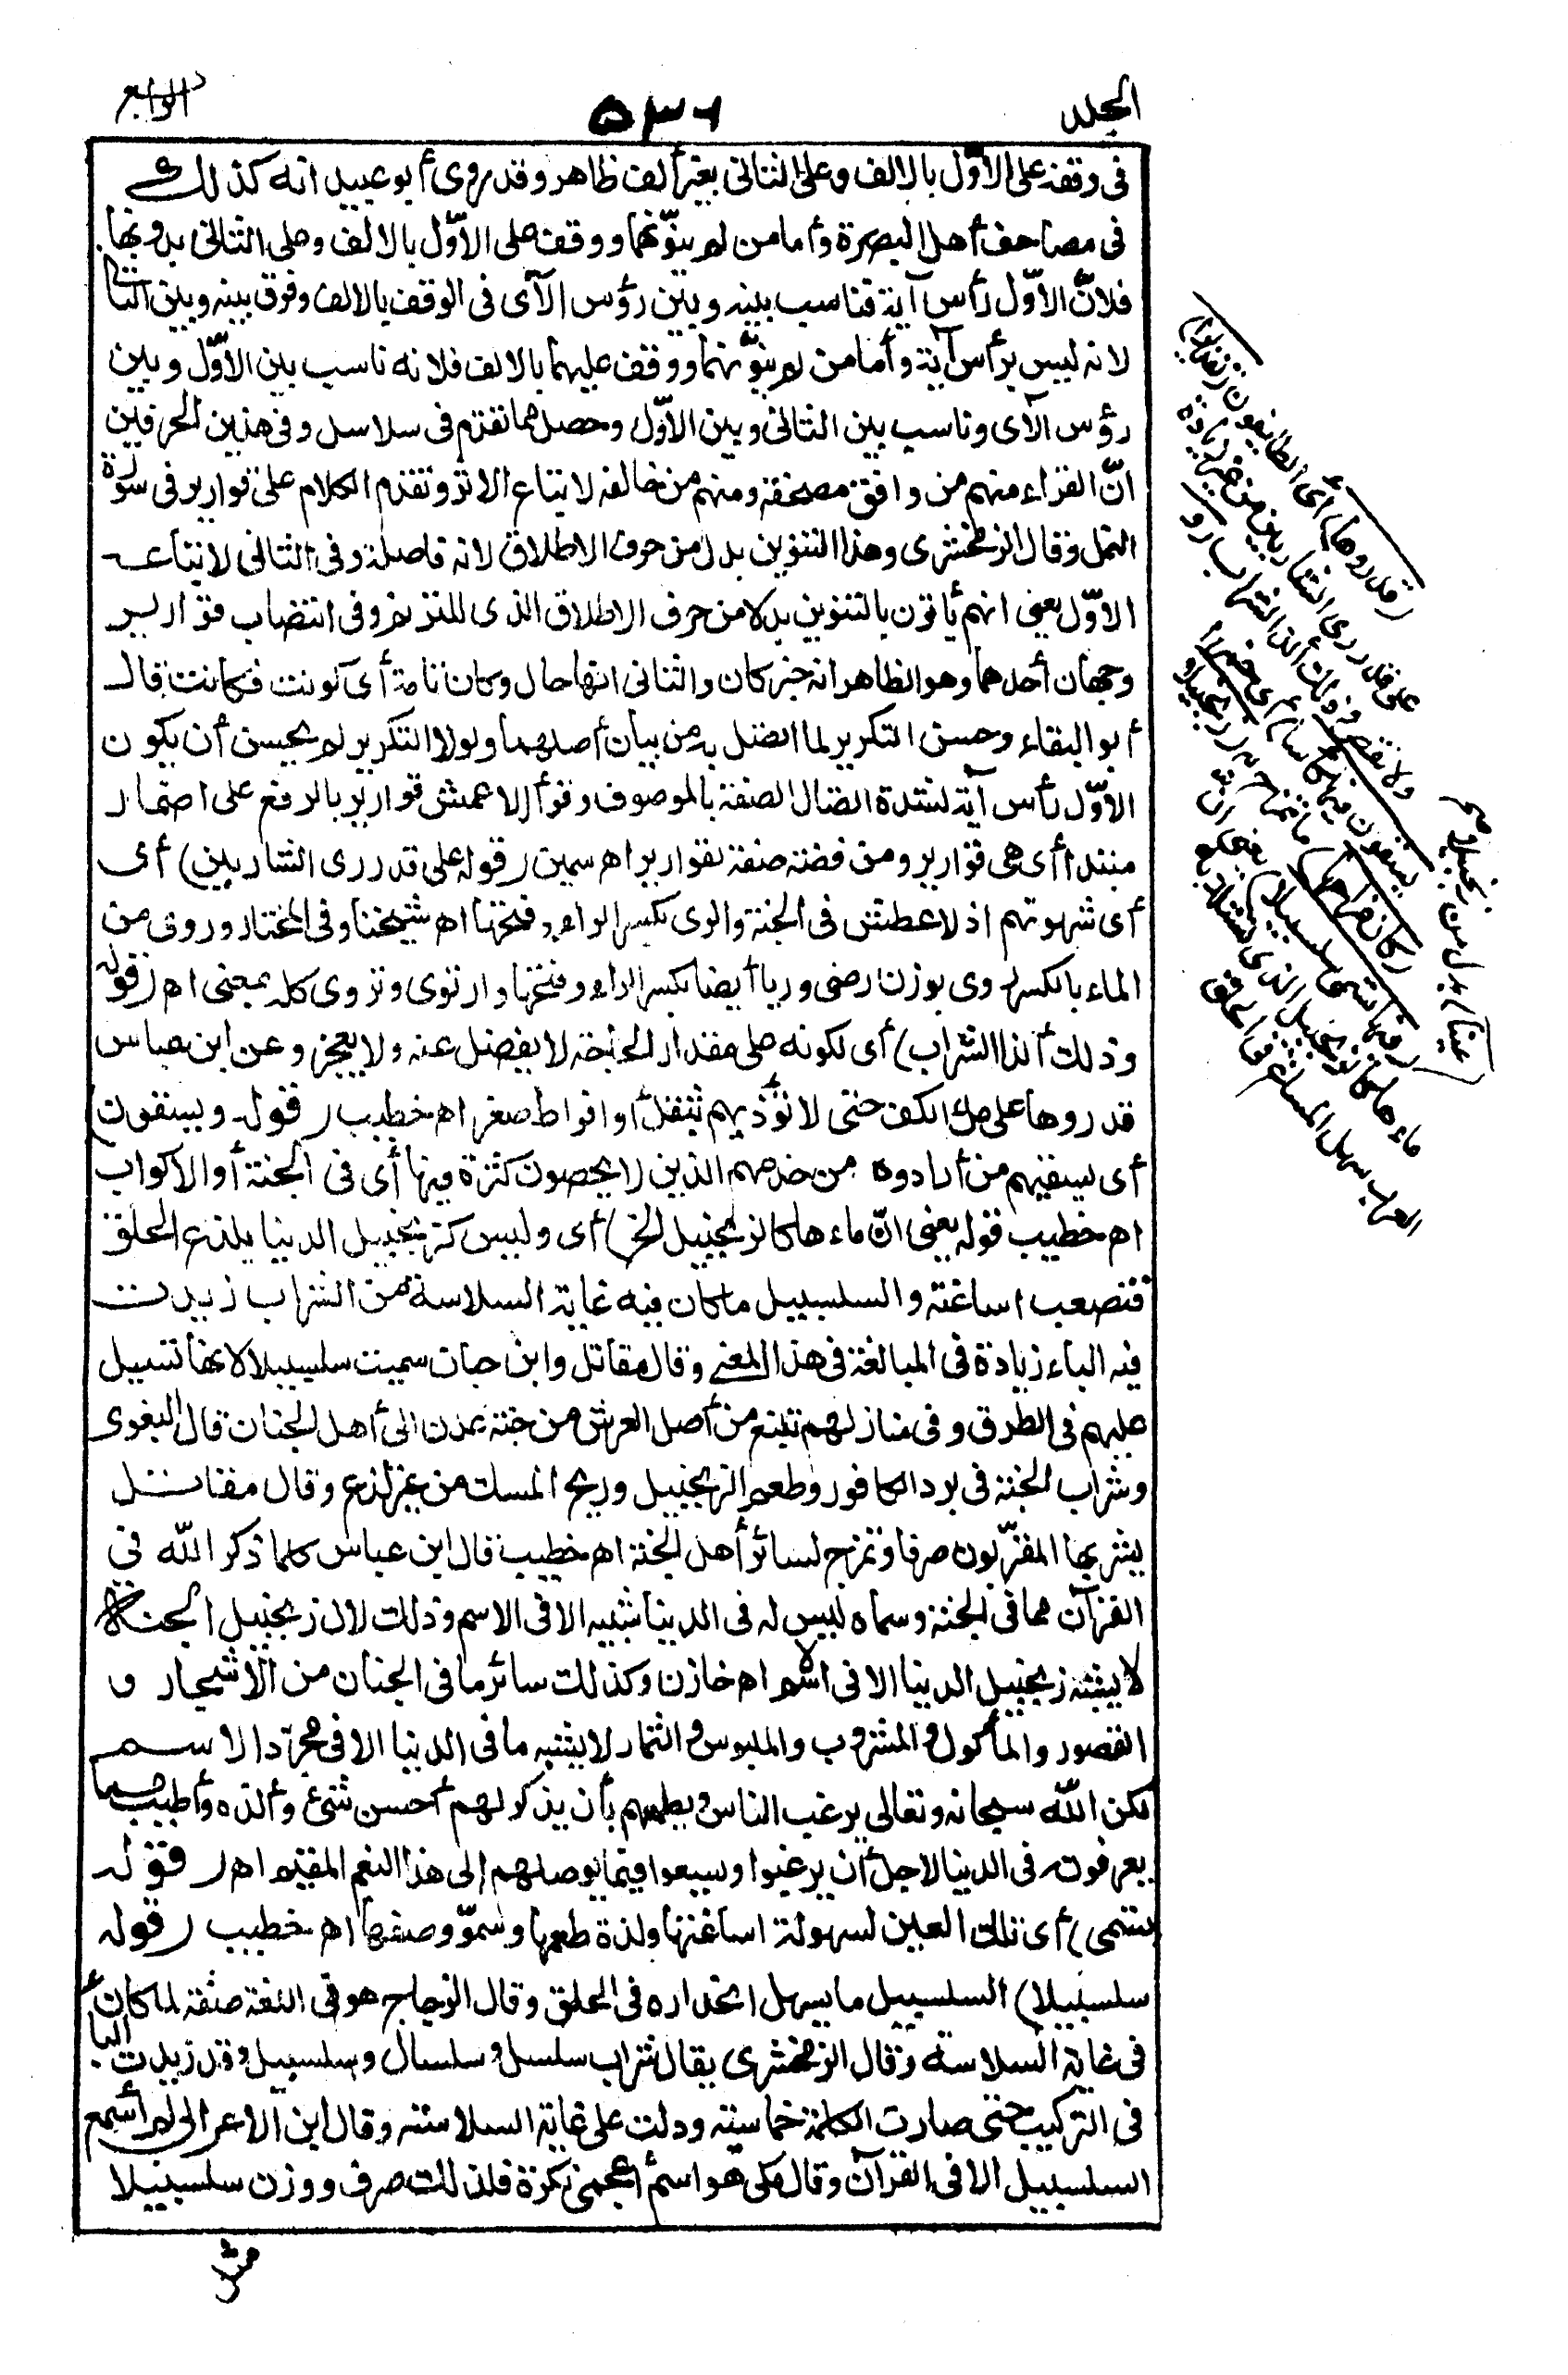 المجلد
٥٣٦
الرابع
فى وقفه على الأوّل بالالف وعلى الثانى بغير ألف ظاهر وقد روى أبو عبيد انه كذلك
فى مصاحف أهل البصرة وأما من لم ينوّنهما ووقف على الأوّل بالالف وعلى الثانى بدونها
فلانّ الأوّل رأس آية فناسب بينه وبين رؤس الآى فى الوقف بالالف وفرق بينه وبين الثانى
لانه ليس برأس آية وأما من لم ينوّنهما ووقف عليهما بالالف فلانه ناسب بين الأوّل وبين
رؤس الآى وناسب بين الثانى وبين الأوّل وحصل مما تقدم فى سلاسل وفى هذين الحرفين
انّ القراء منهم من وافق مصحفه ومنهم من خالفه لاتباع الاثر وتقدم الكلام على قوارير فى سورة
النمل وقال الزمخشرى وهذا التنوين بدل من حرف الاطلاق لانه فاصلة وفى الثانى لاتباعه
الأوّل يعنى انهم يأتون بالتنوين بدلا من حرف الاطلاق الذى للترنم وفى انتصاب قوارير
وجهان أحدهما وهو الظاهر انه خبر كان والثانى انها حال وكان تامة أى كونت فكانت قال
أبو البقاء وحسن التكرير لما اتصل به من بيان أصلهما ولولا التكرير لم يحسن أن يكون
الأوّل رأس آية لشدة اتصال الصفة بالموصوف وقرأ الاعمش قوارير بالرفع على اضمار
مبتدا أى هى قوارير ومن فضة صفة لقوارير اه سمين (قوله على قدر رى الشاربين) أى
أى شهوتهم اذ لا عطش فى الجنة والرى بكسر الراء وفتحها اه شيخنا وفى المختار وروى من
الماء بالكسر روى بوزن رضى وريا أيضا بكسر الراء وفتحها وارتوى وتروى كله بمعنى اه (قوله
وذلك ألذ الشراب) أى لكونه على مقدار الحاجة لا يفضل عنه ولا يعجز وعن ابن عباس
قدروها على ملء الكف حتى لا تؤذيهم بثقل أو افراط صغر اه خطيب (قوله ويسقون)
أى يسقيهم من أرادوه من خدمهم الذين لا يحصون كثرة فيها أى فى الجنة أو الاكواب
اه خطيب قوله يعنى انّ ماءها كالزنجبيل الخ) أى وليس كزنجبيل الدنيا يلذع الحلق
فتصعب اساغته والسلسبيل ما كان فيه غاية السلاسة من الشراب زيدت
فيه الباء زيادة فى المبالغة فى هذا المعنى وقال مقاتل وابن حبان سميت سلسبيلا لانها تسيل
عليهم فى الطرق وفى منازلهم تنبع من أصل العرش من جنة عدن الى أهل الجنان قال البغوى
وشراب الجنة فى برد الكافور وطعم الزنجبيل وريح المسك من غير لذع وقال مقاتل
يشربها المقرّبون صرفا وتمزج لسائر أهل الجنة اه خطيب قال ابن عباس كلما ذكر الله فى
القرآن مما فى الجنة وسماه ليس له فى الدنيا شبيه الا فى الاسم وذلك لان زنجبيل الجنة
لا يشبه زنجبيل الدنيا الا فى الاسم اه خازن وكذلك سائر ما فى الجنان من الاشجار و
القصور والمأكول والمشروب والملبوس والثمار لا يشبه ما فى الدنيا الا فى مجرّد الاسم
لكن الله سبحانه وتعالى يرغب الناس ويطمعهم بأن يذكر لهم أحسن شئ وألذه وأطيب مما
يعرفون فى الدنيا لاجل أن يرغبوا ويسعوا فيما يوصلهم إلى هذا النعيم المقيم اه (قوله
تسمى) أى تلك العين لسهولة اساغتها ولذة طعمها وسموّ وصفها اه خطيب (قوله
سلسبيلا) السلسبيل ما يسهل انحداره فى الحلق وقال الزجاج هو فى اللغة صفة لما كان
فى غاية السلاسة وقال الزمخشرى يقال شراب سلسل وسلسال وسلسبيل وقد زيدت الباء
فى التركيب حتى صارت الكلمة خماسية ودلت على غاية السلاسة وقال ابن الاعرابى لم أسمع
السلسبيل الا فى القرآن وقال مكى هو اسم أعجمى نكرة فلذلك صرف ووزن سلسبيلا
(قدروها) أى الطائفون (تقديرا)
على قدر رى الشاربين من غير زيادة
ولا نقص وذلك ألذ الشراب (و
يسقون فيها كأسا) أى خمرا
(كان مزاجها) ما تمزج به (زنجبيلا
عينا) بدل من زنجبيلا
(فيها تسمى سلسبيلا) يعنى ان
ماءها كالزنجبيل الذى تستلذ به
العرب سهل المساغ فى الحلق